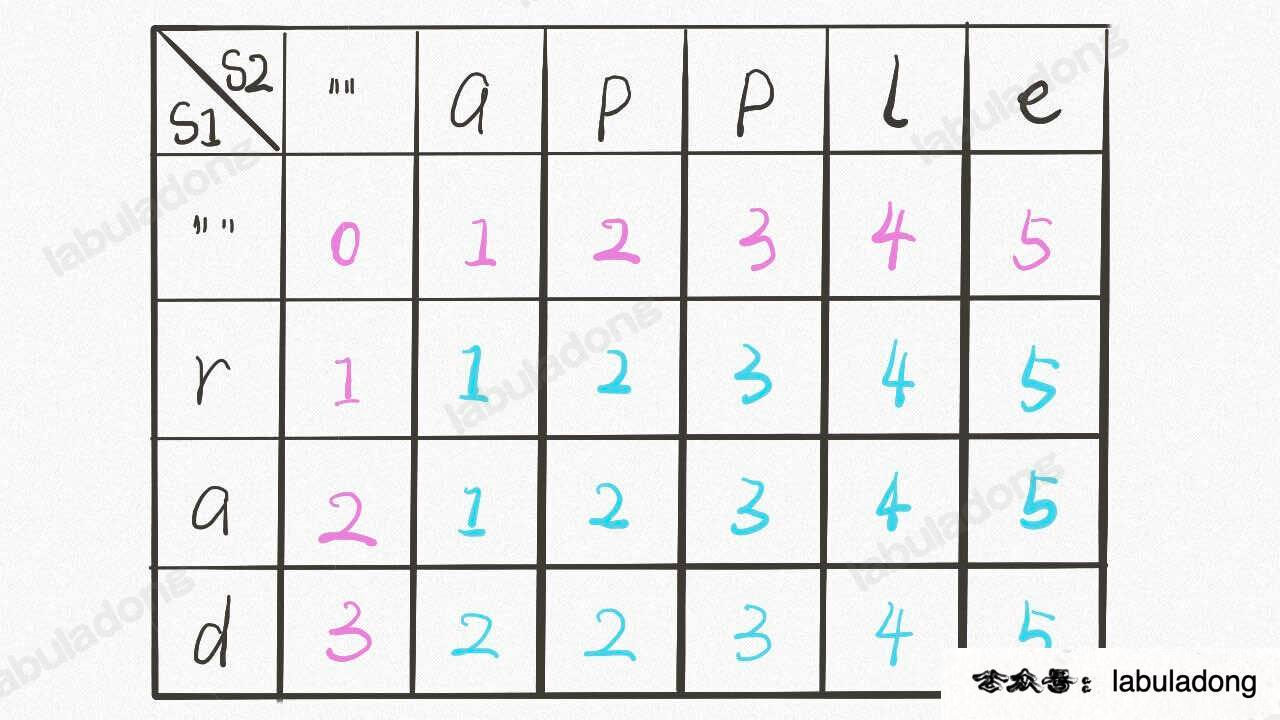 S2 "" a p p l e
S1
"" 0 1 2 3 4 5
r 1 1 2 3 4 5
a 2 1 2 3 4 5
d 3 2 2 3 4 5
公众号：labuladong
labuladong
labuladong
labuladong
labuladong
labuladong